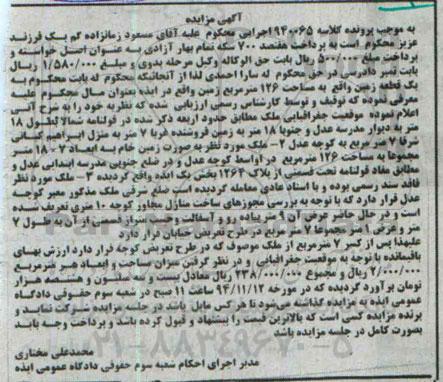 آگهی مزایده
به موجب پرونده کلاسه ۹۴۰۰۶۵ اجرایی محکوم علیه آقای مسعود زمانزاده کم بک فرزند
عزیز محکوم است به پرداخت هفتصد ۷۰۰ سکه تمام بهار آزادی به عنوان اصل خواسته و
پرداخت مبلغ ۵۰۰/۰۰۰ ریال بابت حق الوکاله وکیل مرحله بدوی و مبلغ ۱/۵۸۰/۰۰۰ ریال
بابت تمبر دادرسی در حق محکوم له سارا احمدی لذا از آنجائیکه محکوم له بابت محکوم به
یک قطعه زمین واقع به مساحت ۱۲۶ مترمربع زمین واقع در ایذه بعنوان مال محکوم علیه
معرفی نموده که توقیف و توسط کارشناس رسمی ارزیابی شده که نظریه خود را به شرح آتی
اعلام نموده موقعیت جغرافیایی ملک مطابق حدود اربعه ذکر شده در قولنامه شمالا بطول ۱۸
متر به دیوار مدرسه عدل و جنوبا ۱۸ متر به زمین فروشنده غربا ۷ متر به منزل ابراهیم کیانی
شرقا ۷ متر مربع به کوچه عدل ۲- ملک مورد نظر به صورت زمین خام به ابعاد ۷-۱۸ متر
مجموعا به مساحت ۱۲۶ مترمربع در اواسط کوچه عدل و در ضلع جنوبی مدرسه ابتدایی عدل و
مطابق مفاد قولنامه تحت قسمتی از پلاک ۱۲۶۴ بخش یک ایذه واقع گردیده ۳- ملک مورد نظر
فاقد سند رسمی بوده و با اسناد عادی معامله گردیده است ضلع شرقی ملک مذکور معبر کوچه
عدل قرار دارد که با توجه به بررسی مجوزهای ساخت منازل مجاور کوچه ۱۰ متری تعریف شده
است و در حال حاضر عرض آن ۹ متر پیاده رو و آسفالت و جدول تیراژ قسمتی از آن به طول ۷
متر و عرض ۱ متر مجموعا ۷ متر مربع در طرح تعریض خیابان قرار دارد
علیهذا پس از کسر ۷ مترمربع از ملک موصوف که در طرح تعریض کوچه قرار دارد ارزش بهای
باقیمانده با توجه به موقعیت جغرافیایی و در نظر گرفتن میزان مساحت و ابعاد هر مترمربع
۲/۰۰۰/۰۰۰ ریال و مجموع ۲۳۸/۰۰۰/۰۰۰ ریال معادل بیست و سه میلیون و هشتصد هزار
تومان برآورد گردیده که در مورخه ۹۴/۱۱/۱۲ ساعت ۱۱ صبح در شعبه سوم حقوقی دادگاه
عمومی ایذه به مزایده گذاشته می‌شود تا هر کس مایل باشد در جلسه مزایده شرکت نماید و
برنده مزایده کسی است که بالاترین قیمت را پیشنهاد و قبول کرده باشد و پرداخت وجه باید
بصورت کامل در جلسه مزایده باشد
محمدعلی مختاری
مدیر اجرای احکام شعبه سوم حقوقی دادگاه عمومی ایذه
۰۲۱-۸۸۳۴۹۶۷۰-۵